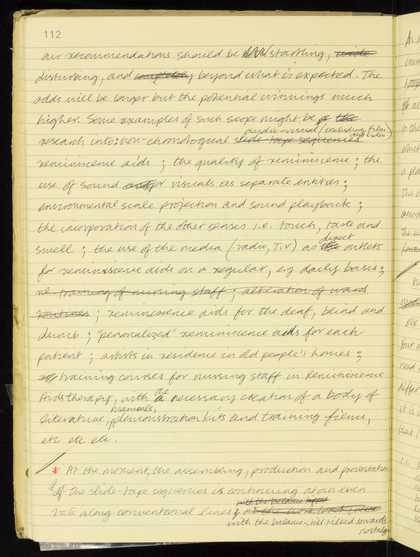 112
our recommendations should be startling,
disturbing, and completely beyond what is expected. The
odds will be larger but the potential winnings much
higher. Some examples of such scope might be
audio-visual (excluding film and video)
research into: non-chronological slide tape sequences
reminiscence aids ; the quality of reminiscence ; the
use of sound and/or visuals as separate entities ;
environmental scale projection and sound playback ;
the incorporation of the other senses i.e. touch, taste and
smell ; the use of the media (radio, T.V) as direct outlets
for reminiscence aids on a regular, e.g. daily basis ;
re-training of nursing staff ; alteration of ward
routines ; reminiscence aids for the deaf, blind and
dumb ; 'personalized' reminiscence aids for each
patient ; artists in residence in old people's homes ;
training courses for nursing staff in Reminiscence
Aids therapy, with the necessary creation of a body of
literature, demonstration kits and training films,
etc etc etc.
* At the moment, the assembling, production and presentation
of the slide-tape sequences is continuing at an even
rate along conventional lines,
with the balance still tilted towards
nostalgia